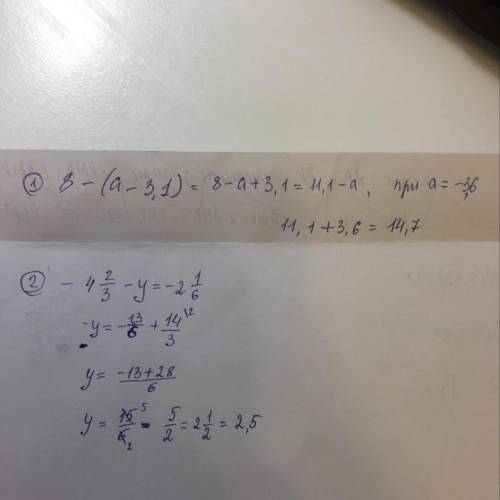 ① 8 - (a - 3,1) = 8 - a + 3,1 = 11,1 - a, при a = -3,6
11,1 + 3,6 = 14,7
② - 4 2/3 - y = -2 1/6
-y = - 13/6 + 14/3 \2
y = (-13 + 28)/6
y = 15/6 5 2 = 5/2 = 2 1/2 = 2,5